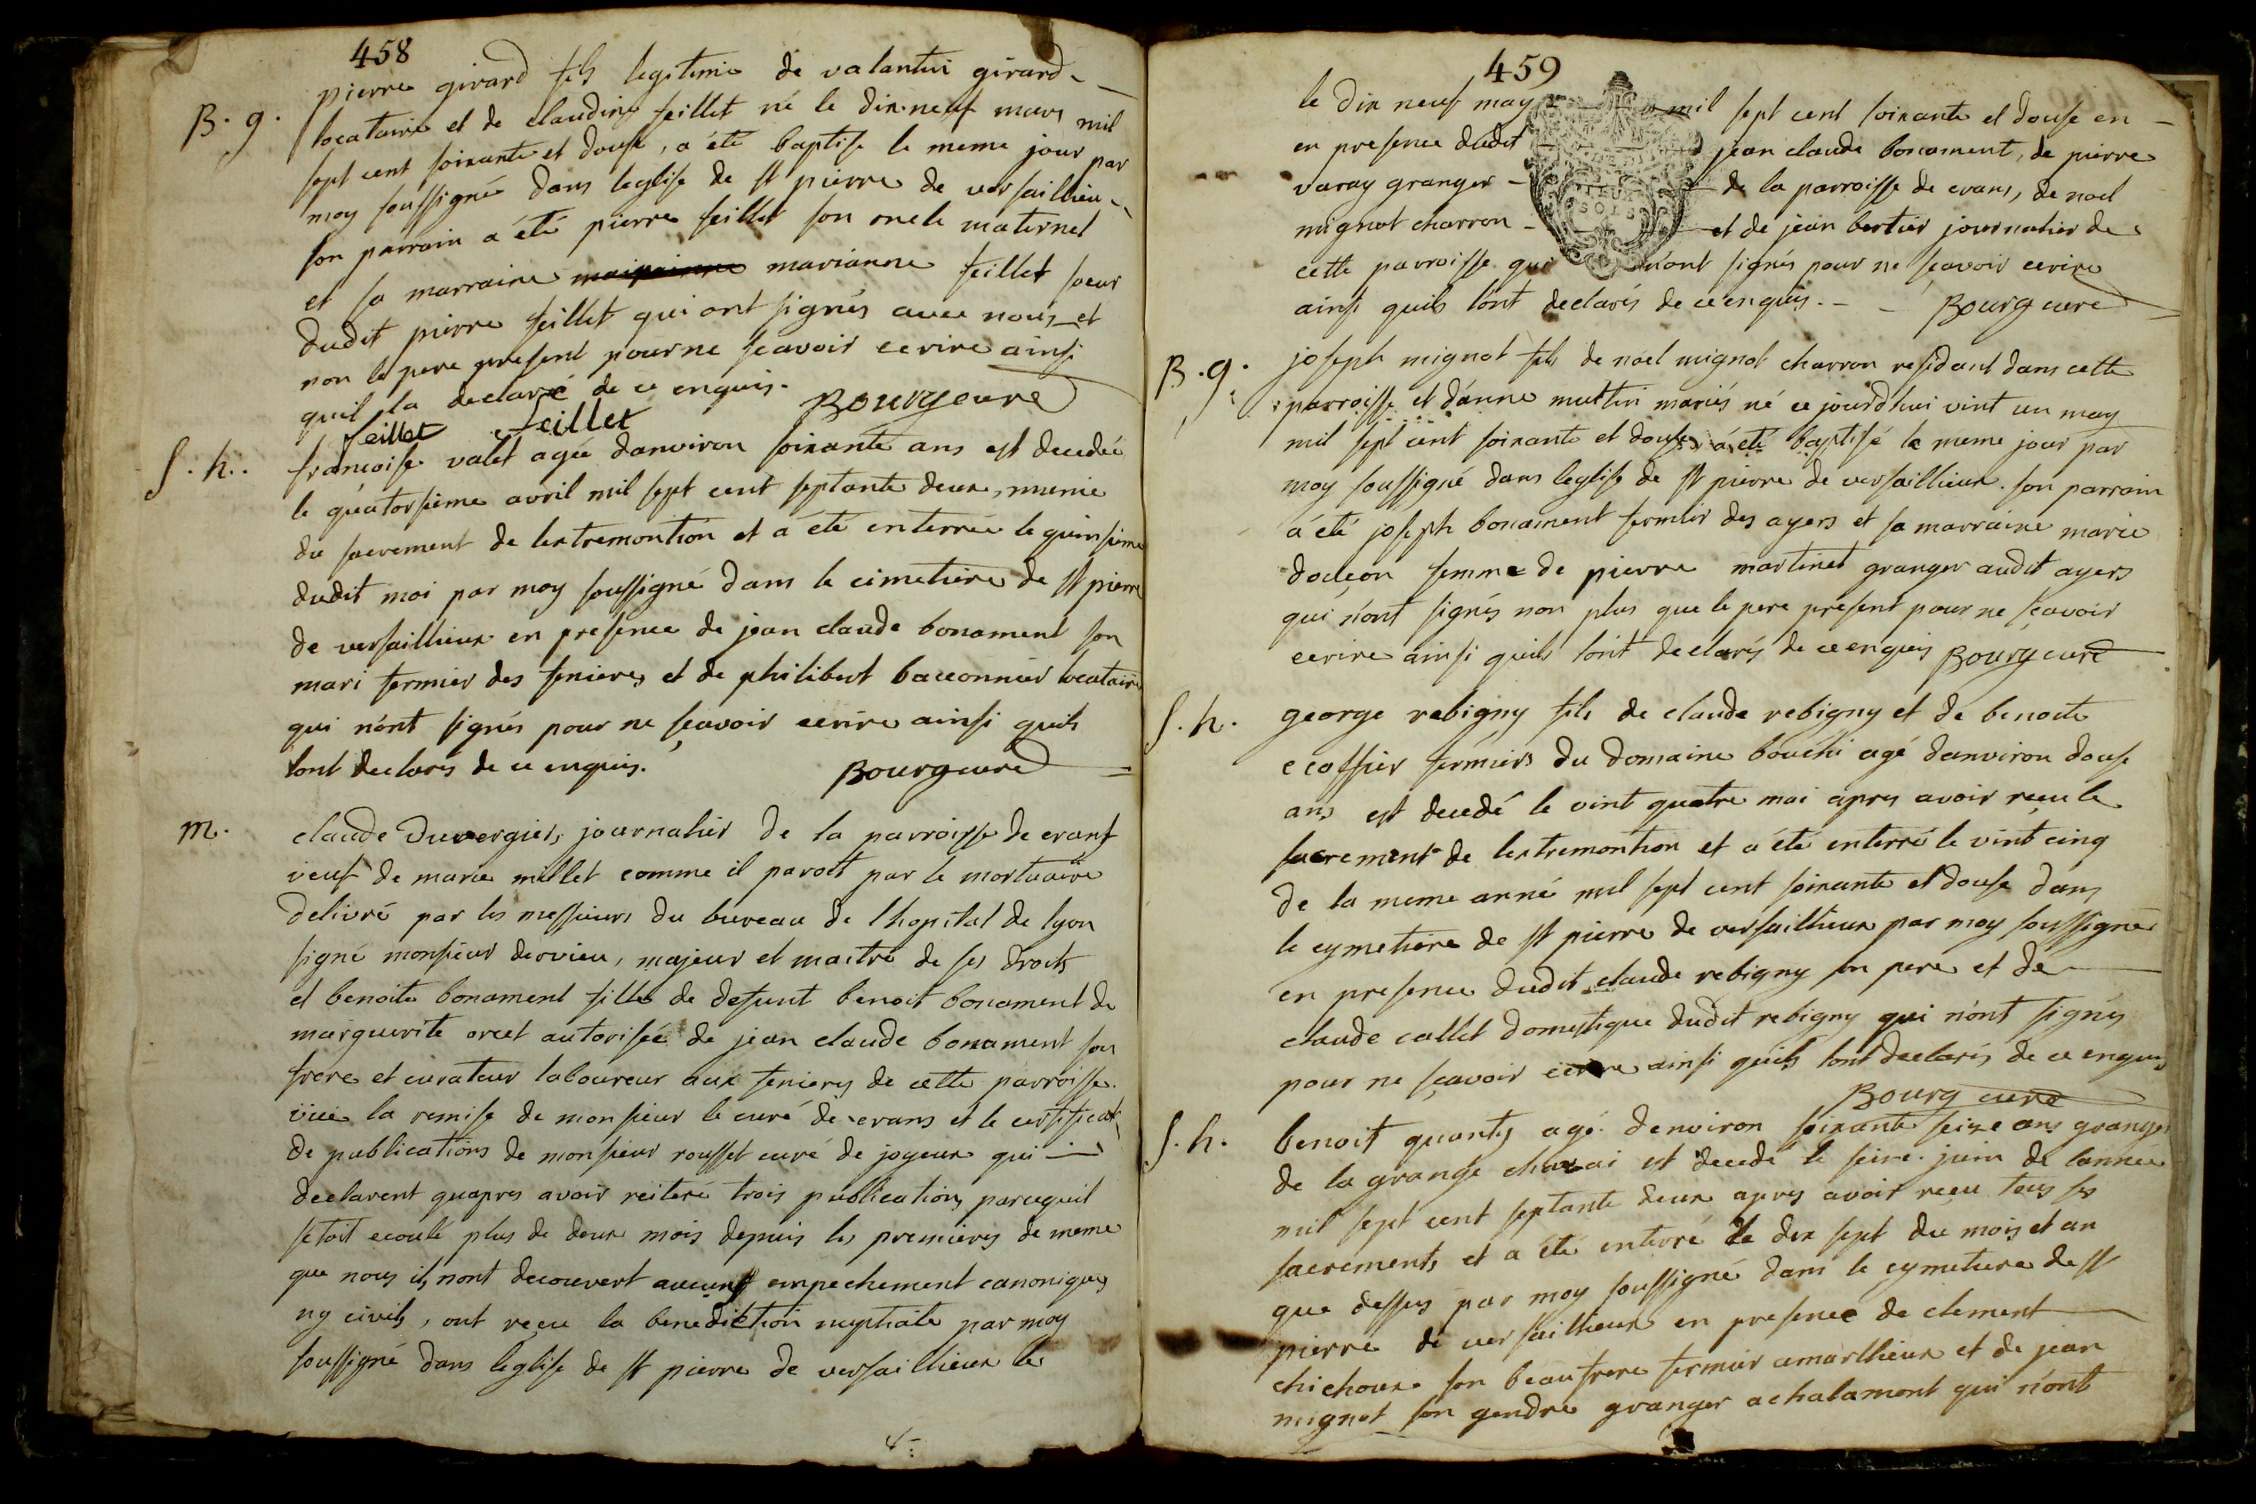 458
B. g. pierre girard fils legitime de valantin girard
locataire et de claudine feillet né le dix-neuf mars mil
sept cent soixante et douse, a été baptise le meme jour par
moy soussigné dans leglise de st pierre de versaillieu
son parrain a été pierre feillet son oncle maternel
et sa marraine marianne feillet soeur
dudit pierre feillet qui ont signés avec nous et
non le pere present pour ne scavoir ecrire ainsi
quil la declaré de ce enquis. Bourg curé
feillet feillet
S. h. francoise valet agée danviron soixante ans est decedée
le quatorsieme avril mil sept cent septante deux, munie
du sacrement de lextremontion et a été enterrée le quinsieme
dudit moi par moy soussigné dans le cimetiere de st pierre
de versaillieux en presence de jean claude bonament son
mari fermier des fenieres et de philibert bacconnier locataire
qui n'ont signés pour ne sçavoir ecrire ainsi quils
lont declarés de ce enquis. Bourg curé
m. claude duvergier, journalier de la parroisse de crans
veuf de marie millet comme il paroit par le mortuaire
delivré par les messieurs du bureau de lhopital de lyon
signé monsieur dervieu, majeur et maitre de ses droits
et benoite bonament fille de defunt benoit bonament de
marguerite orcet autorisée de jean claude bonament son
frere et curateur laboureur aux fenieres de cette parroisse.
vüe la remise de monsieur le curé de crans et le certificat
de publications de monsieur rousset curé de joyeux qui
declarent quapres avoir reiteré trois publications parcequil
setoit ecoulé plus de deux mois depuis les premieres de meme
que nous ils nont decouvert aucuns empechement canoniques
ny civils, ont reçu la benediction nuptiale par moy
soussigné dans leglise de st pierre de versaillieux le
459
le dix neuf may mil sept cent soixante et douse en
en presence dudit jean claude bonament, de pierre
varay granger de la parroisse de crans, de noel
mignot charron et de jean bertier journalier de
cette parroisse qui n'ont signés pour ne sçavoir ecrire
ainsi quils lont declarés de ce enquis. Bourg curé
B. g. joseph mignot fils de noel mignot charron residant dans cette
parroisse et d'anne muttin mariés né ce jourdhui vint un may
mil sept cent soixante et douse a été baptisé le meme jour par
moy soussigné dans leglise de st pierre de versaillieux. son parrain
a été joseph bonament fermier des ayers et sa marraine marie
docleon femme de pierre martinet granger audit ayers
qui n'ont signés non plus que le pere present pour ne sçavoir
ecrire ainsi quils lont declarés de ce enquis Bourg curé
S. h. george rebigny fils de claude rebigny et de benoite
ecoffier fermiers du domaine bouchi agé danviron douse
ans est decedé le vint quatre mai apres avoir reçu le
sacrement de lextremontion et a été enterré le vint cinq
de la meme anné mil sept cent soixante et douse dans
le cymetiere de st pierre de versaillieux par moy soussigné
en presence dudit claude rebigny son pere et de
claude callet domestique dudit rebigny qui n'ont signés
pour ne sçavoir ecrire ainsi quils lont declarés de ce enquis
Bourg curé
S. h. benoit quantis agé denviron soixante seize ans granger
de la grange est decedé le seize juin de lannee
mil sept cent septante deux apres avoir reçu tous ses
sacrements et a été enterré le dix sept du mois et an
que dessus par moy soussigné dans le cymetiere de st
pierre de versaillieux en presence de clement
chichoux son beaufrere fermier amarllieux et de jean
mignot son gendre granger achalamont qui n'ont